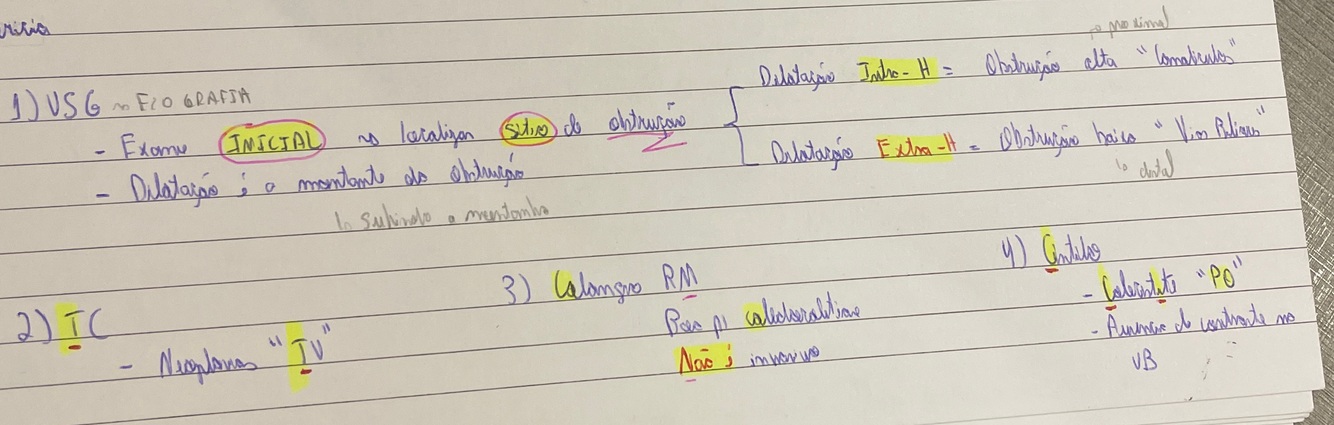 1) USG ~ ECOGRAFIA
- Exame INICIAL localizar sítio de obstrução
Dilatação Intra-H = Obstrução alta "Canalículos"
↳ proximal
Dilatação Extra-H = Obstrução baixa "Vias Biliares"
↳ distal
- Dilatação é a montante da obstrução
↳ Subindo a montanha
2) TC
- Neoplasias
3) Colangio RM
Boa p/ coledocolitíase
Não é invasivo
4) Cintilo
- Colecistite "PO"
- Ausência de contraste na
VB